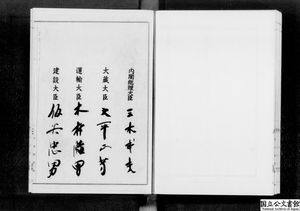 内閣総理大臣 三木武夫
大蔵大臣 大平正芳
運輸大臣 木村睦男
建設大臣 仮谷忠男
国立公文書館
National Archives of Japan